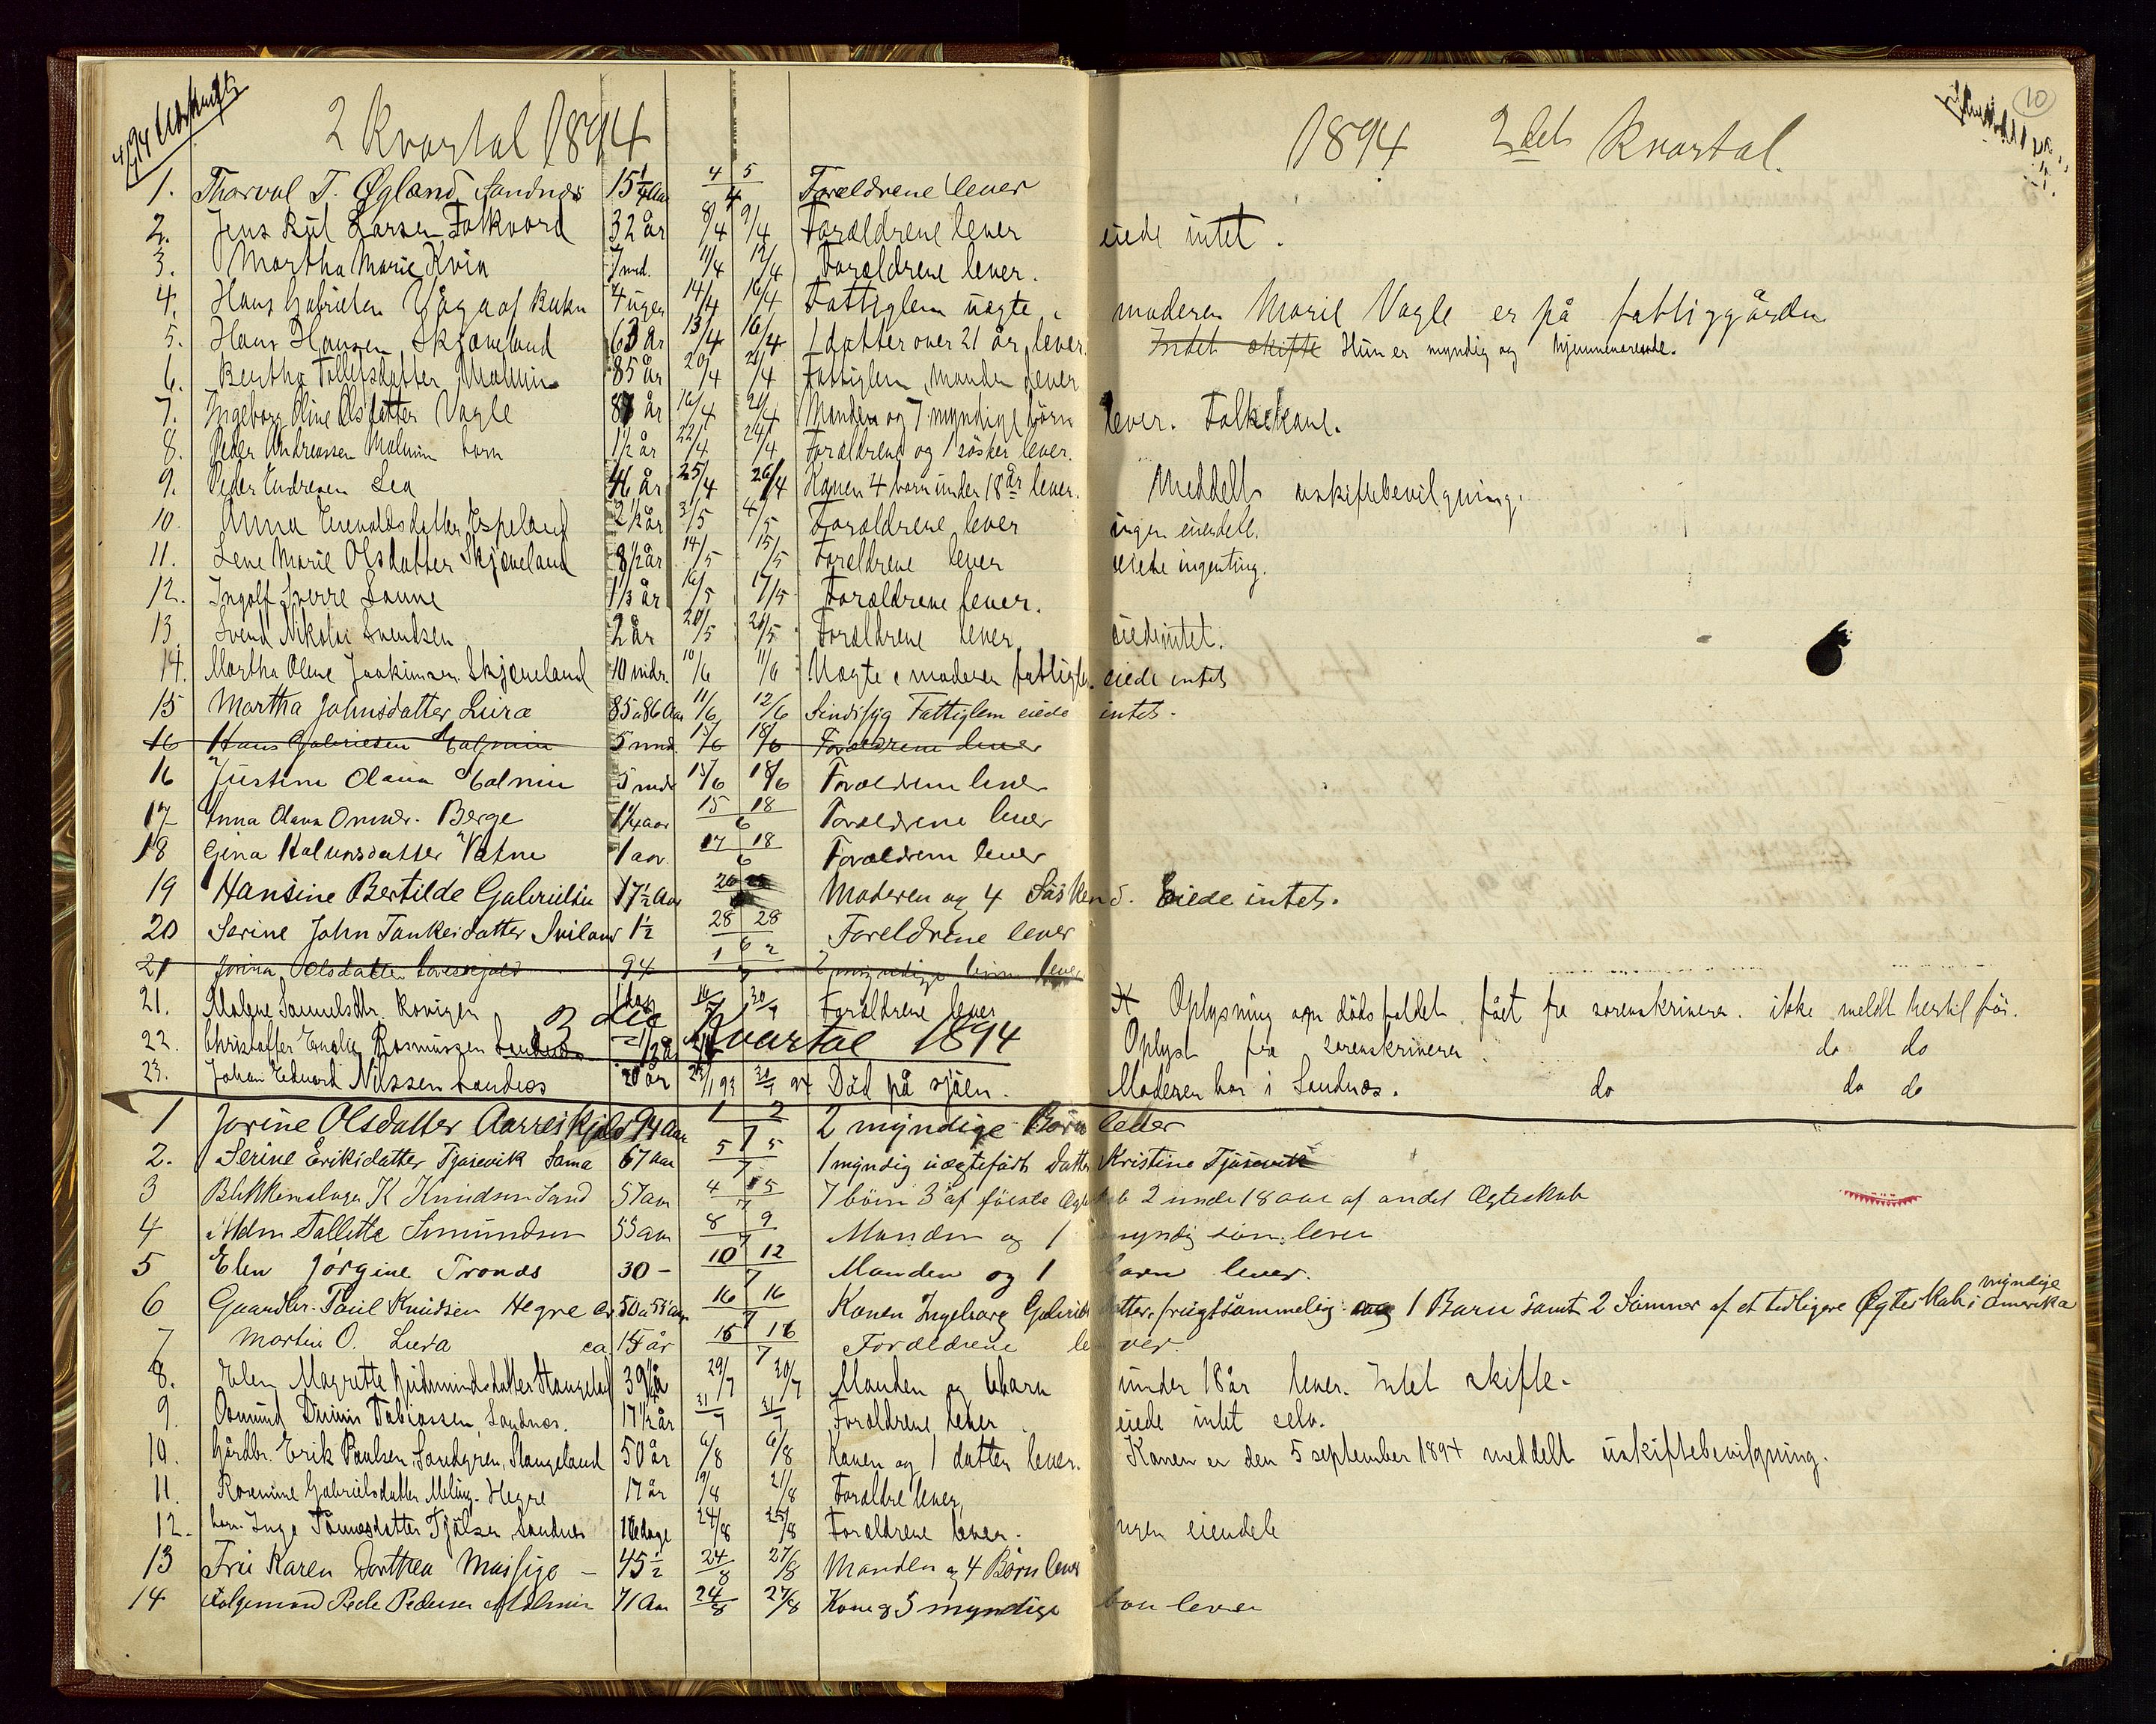 2 Kvartal 1894
1894 2det Kvartal.
10
1. Thorval T. Øgland, Sandnæs 15 1/4 Aar 4 5/4 Forældrene lever
2. Jens Larsen Folkvord 32 år 8/4 9/4 Forældrene lever eiede intet.
3. Martha Marie Kvia 7 md. 11/4 12/4 Forældrene lever.
4. Hans Gabrielsen 4 uger 14/4 16/4 Fattiglem uægte, moderen Marie Vagle er på fattiggården
5. Hans Hansen Skjæveland 63 År 13/4 16/4 1 datter over 21 år lever. Intet skifte Hun er myndig og hjemmeværende.
6. Bertha Tollefsdatter Malmin 85 år 20/4 21/4 Fattiglem, manden lever
7. Ingeborg Oline Olsdatter Vagle år 16/4 21/4 Manden og 7 myndige börn lever. Folkekone.
8. Peder Andreassen Malmin barn 1 1/2 år 22/4 24/4 Forældrene og 1 søsken lever.
9. Peder Endresen Lea 46 år 25/4 26/4 Konen 4 barn under 18 år lever. Meddelt uskiftebevilgning.
10. Anna Enevaldsdatter Espeland 2 1/2 år 3/5 4/5 Forældrene lever ingen eiendele.
11. Lene Marie Olsdatter Skjæveland 8 1/2 år 14/5 15/5 Foreldrene lever eiede ingenting.
12. Ingolf Sverre Lunne 1 1/3 år 16/5 17/5 Forældrene lever.
13. Svend Nikolai Svendsen 2 år 20/5 21/5 Forældrene lever eiede intet.
14. Martha Olene Joakimsen Skjæveland 10 mdr. 10/6 11/6 Uægte moderen fattiglem. eiede intet
15 Martha Johnsdatter Lura 85 a 86 Aar 11/6 12/6 Sindssyg Fattiglem eiede intet.
16 Hans Gabrielsen Malmin 5 mnd. 15/6 18/6 Forældrene lever
16 Justine Olava Malmin 5 mdr 15/6 18/6 Forældrene lever
17 Anna Olava Omner. Berge 1 1/4 aar 15 18/6 Forældrene lever
18 Gina Halvorsdatter Vatne 1 aar. 17 18/6 Forældrene lever
19 Hansine Bertilde Gabrielsen 17 1/2 Aar 26 Moderen og 4 Søskend. Eiede intet.
20 Serine John Tankesdatter Sviland 1 1/2 28 28/6 Foreldrene lever
21 Jorina Olsdatter 94 1 2/7 2 myndige börn lever
21. Malene Samuelsdtr. 1 dag 30/7 Forældrene lever Oplysning om dödsfaldet fået fra sorenskriveren. ikke meldt hertil før.
3die Kvartal 1894
22. Christoffer Emelie Rasmussen 1/2 år Oplyst fra sorenskriveren. do do
23. Johan Edvard Nilssen Sandnæs 20 år 30/7 94 Död på sjöen. Moderen bor i Sandnæs. do do do
1 Jorine Olsdatter 94 Aar 1 2/7 2 myndige Börn lever
2. Serine Eriksdatter Tjøsevik Soma 67 aar 5 5/7 1 myndig uægtefødt Datter Kristine Tjøsevik
3 Blikkenslager K Knudsen Sand 57 aar 4 5/7 7 börn 3 af første Ægteskab 2 under 18 aar af andet Ægteskab
4 Mdm Tallette Simundsen 55 aar 8 9/7 Manden og 1 myndig sön lever
5 Elen Jørgine Tronæs 30 - 10 12/7 Manden og 1 barn lever.
6 Gaardbr. Paul Knudsen Hegre 50 a 55 aar 16 16/7 Konen Ingeborg Gabrielsdatter, frugtsommelig 1 Barn samt 2 Sønner af et tidligere Ægteskab i Amerika myndige
7 Martin O. Lura ca 15 år 15 16/7 Forældrene lever.
8. Elen Magrette Gudmundsdatter Stangeland 39 1/2 å 29/7 30/7 Manden og barn under 18 år lever. Intet skifte.
9. Osmund Tobiassen, Sandnæs. 17 1/2 år 31/7 31/7 Forældrene lever eiede intet selv.
10. Gårdbr. Erik Paulsen Sandgren, Stangeland 50 år 6/8 6/8 Konen og 1 datter lever. Konen er den 5 september 1894 meddelt uskiftebevilgning.
11. Rasmine Gabrielsdatter Meling. Hegre 17 år 19/8 21/8 Forældre lever,
12. barn Inga Tønnesdatter Tjålsen Sandnes dage 24/8 25/8 Forældrene lever. Ingen eiendele
13 Fru Karen Dorthea Massige - 45 1/2 24/8 27/8 Manden og 4 Børn lever
14 Peder Pedersen Malmin 71 Aar 24/8 27/8 Kone og 5 myndige barn lever